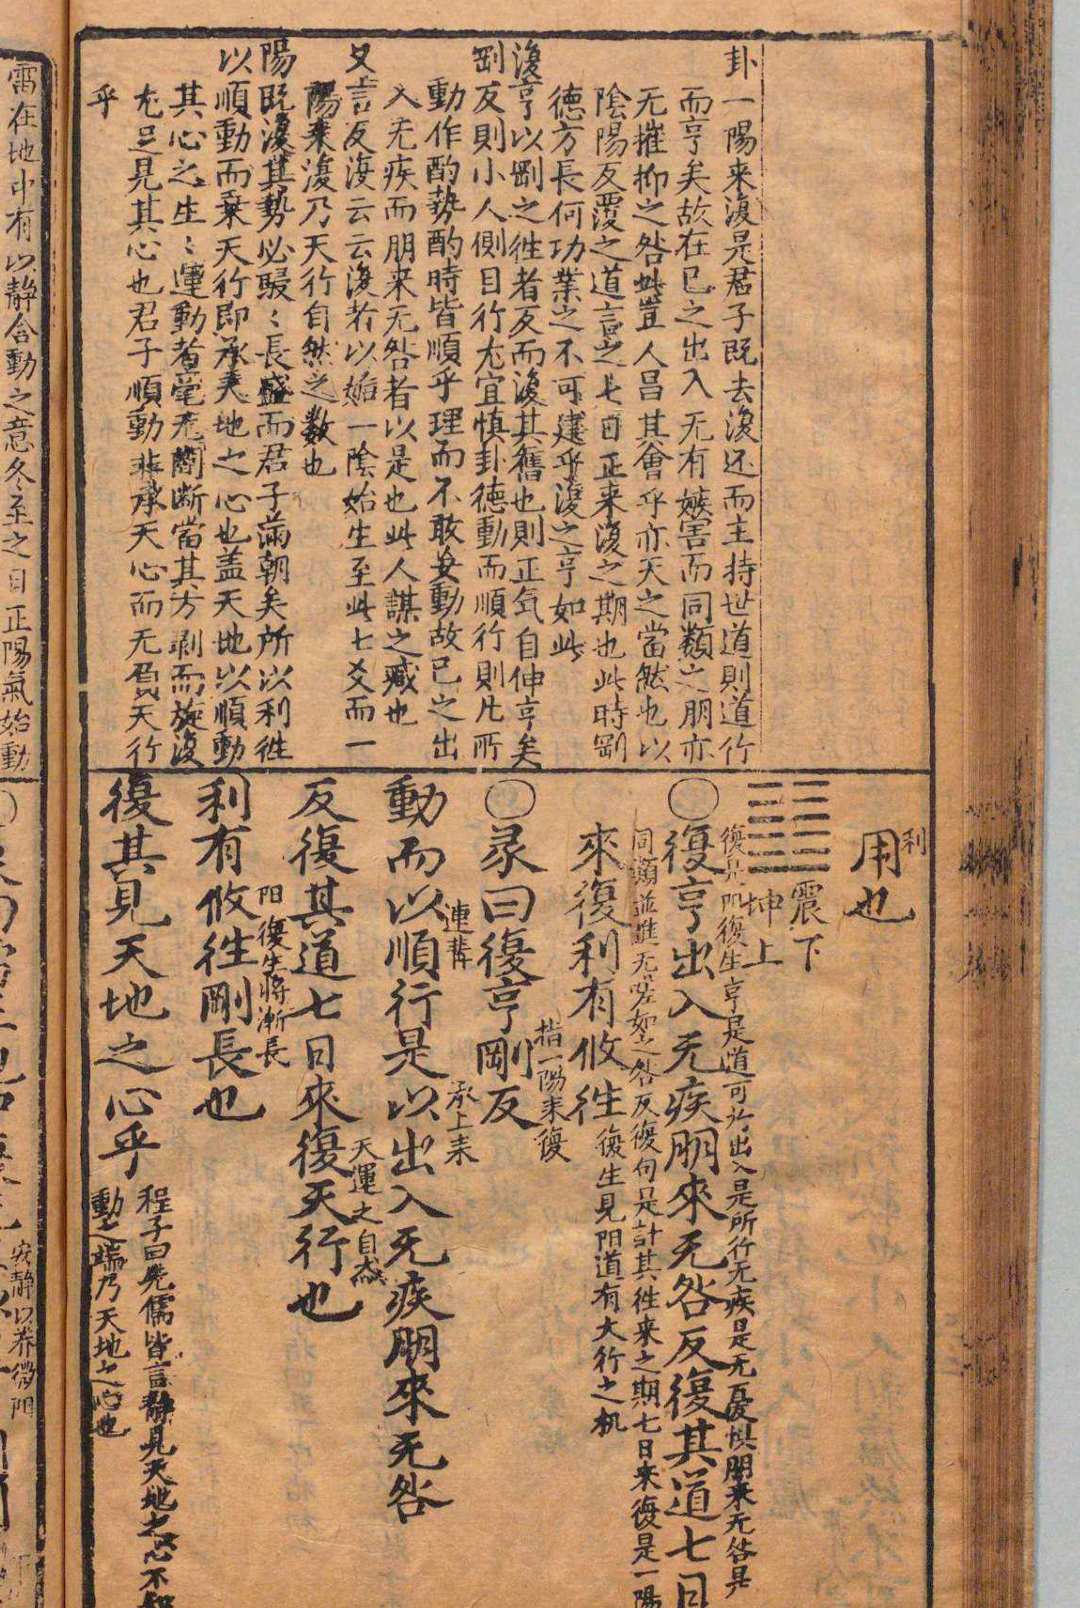 卦一陽来復是君子既去復还而主持世道則道行
而亨矣故在己之出入无有嫉害而同類之朋亦
无摧抑之咎此豈人昌其會乎亦天之當然也以
陰陽反覆之道言之七日正来復之期也此時剛
德方長何功業之不可建乎復之亨如此
復亨以剛之徃者反而復其舊也則正気自伸亨矣
剛反則小人側目行尤宜慎卦德動而順行則凡所
動作酌勢酌時皆順乎理而不敢妄動故己之出
入无疾而朋来无咎者以是也此人謀之臧也
又言反復云云復若以姤一陰始生至此七爻而一
陽来復乃天行自然之数也
陽既復其勢必駸〻長盛而君子滿朝矣所以利徃
以順動而乗天行即承天地之心也盖天地以順動
其心之生〻運動者毫无間断當其方剥而旋復
尤足見其心也君子順動非承天心而无負天行
乎
利
用也
震下
坤上
復是阳復生亨是道可於出入是所行无疾是无憂惧朋来无咎是
〇復亨出入无疾朋來无咎反復其道七日
同類並進无嗟如之咎反復句是計其徃来之期七日来復是一陽
來復利有攸徃
復生見阳道有大行之机
指一陽来復
〇彖曰復亨剛反
連辈
承上来
動而以順行是以出入无疾朋來无咎
天運之自然
反復其道七日來復天行也
阳復生将漸長
利有攸徃剛長也
復其見天地之心乎
程子曰先儒皆言静見天地之心不知
動之端乃天地之心也
雷在地中有以静含動之意冬至之日正陽氣始動
安静以养微阳